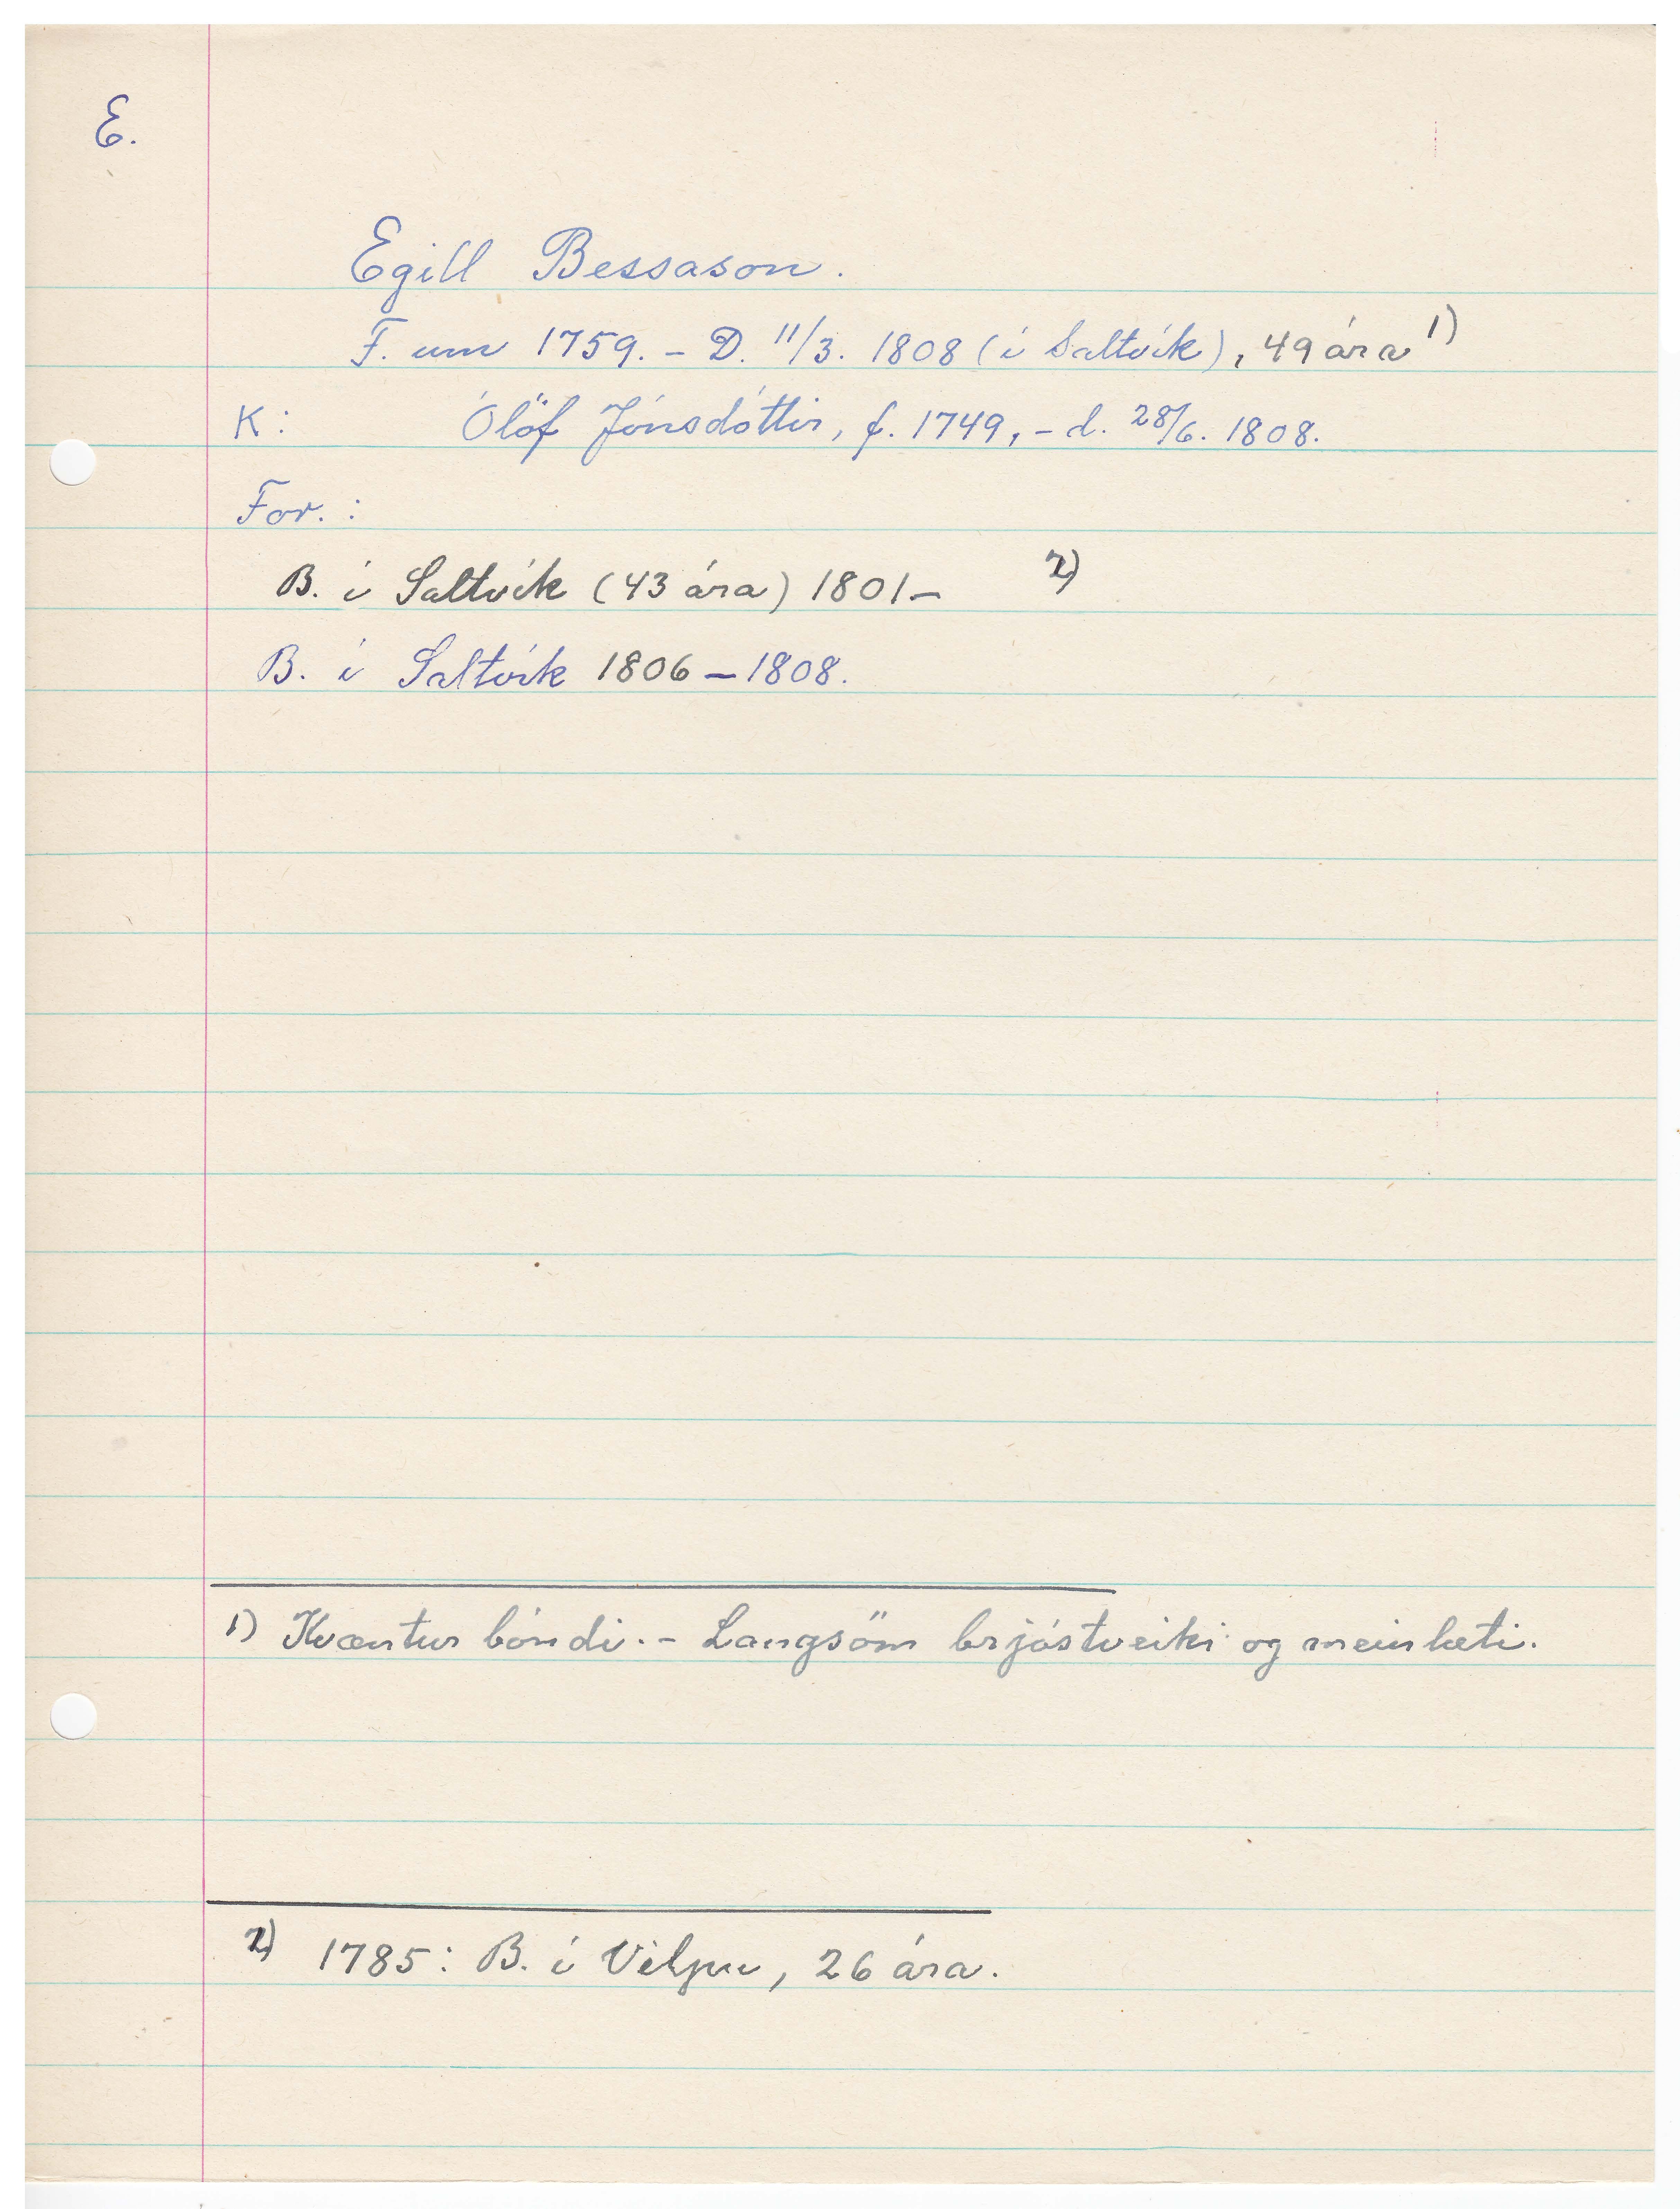 E.
Egill Bessason.
F. um 1759. - D. 11/3. 1808 (í Saltvík), 49 ára 1)
K: Ólöf Jónsdóttir, f. 1749, - d. 28/6. 1808.
For. :
B. í Saltvík (43 ára) 1801- 2)
B. í Saltvík 1806 - 1808.
1) Kvæntur bóndi. - Langsöm brjóstveiki og meinlæti.
2) 1785: B. í Vilpu, 26 ára.